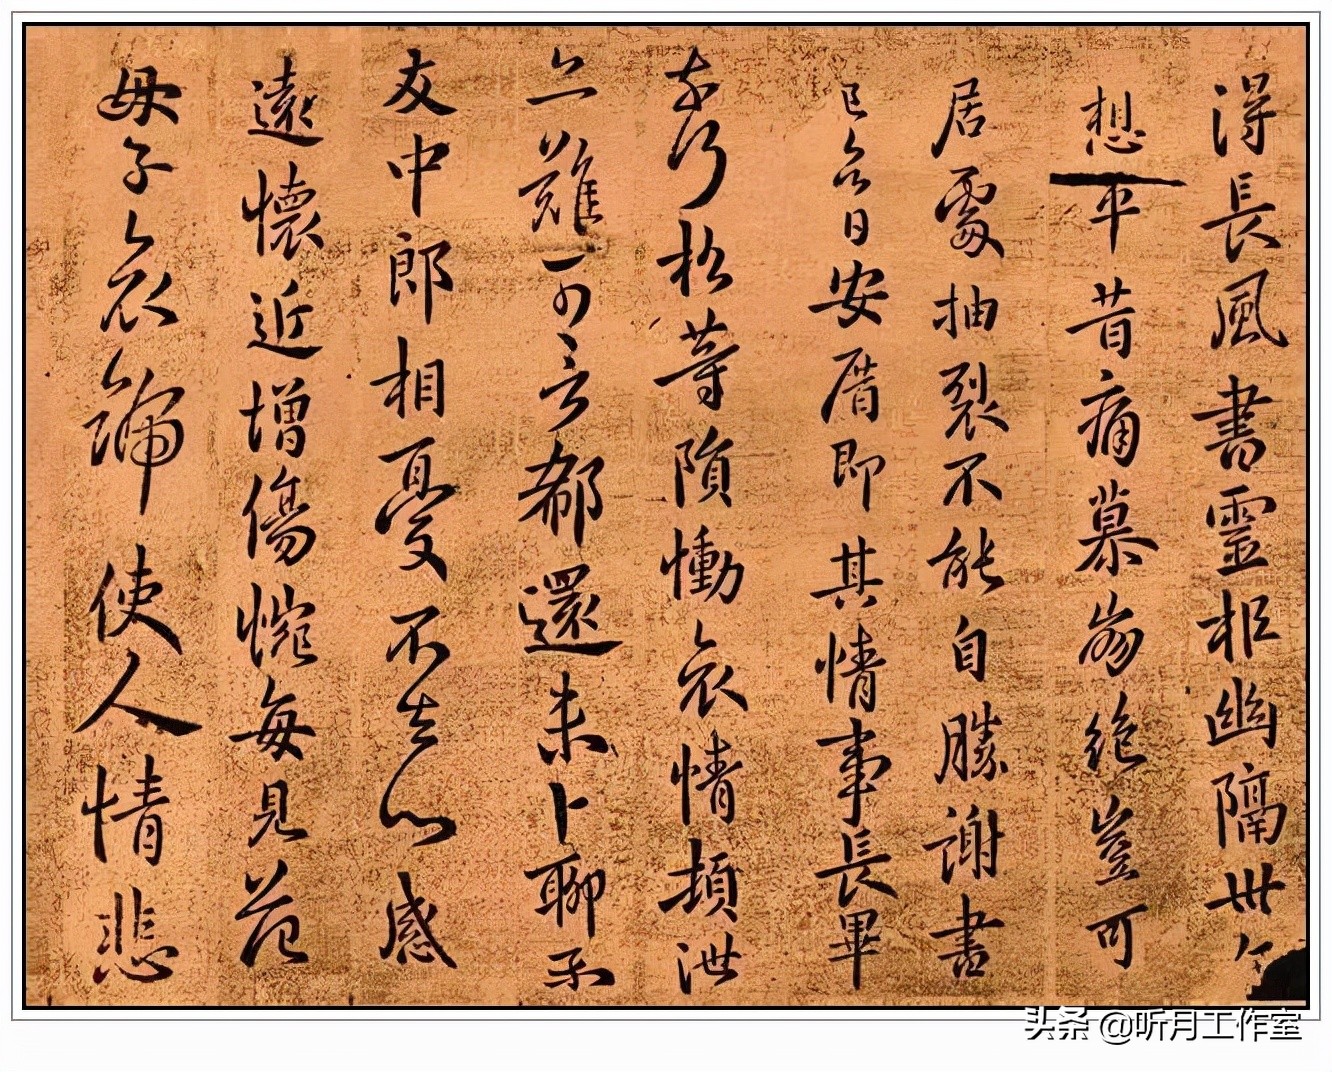 得長風書靈柩幽隔卅
想平昔痛慕崩絕豈可
居處抽裂不能自勝謝書
已云日安厝即其情事長畢
奈何松等隕慟哀情頓泄
亦難可言都還未卜聊示
友中郎相憂不去心感
遠懷近增傷惋每見范
母子哀號使人情悲
头条 @听月工作室